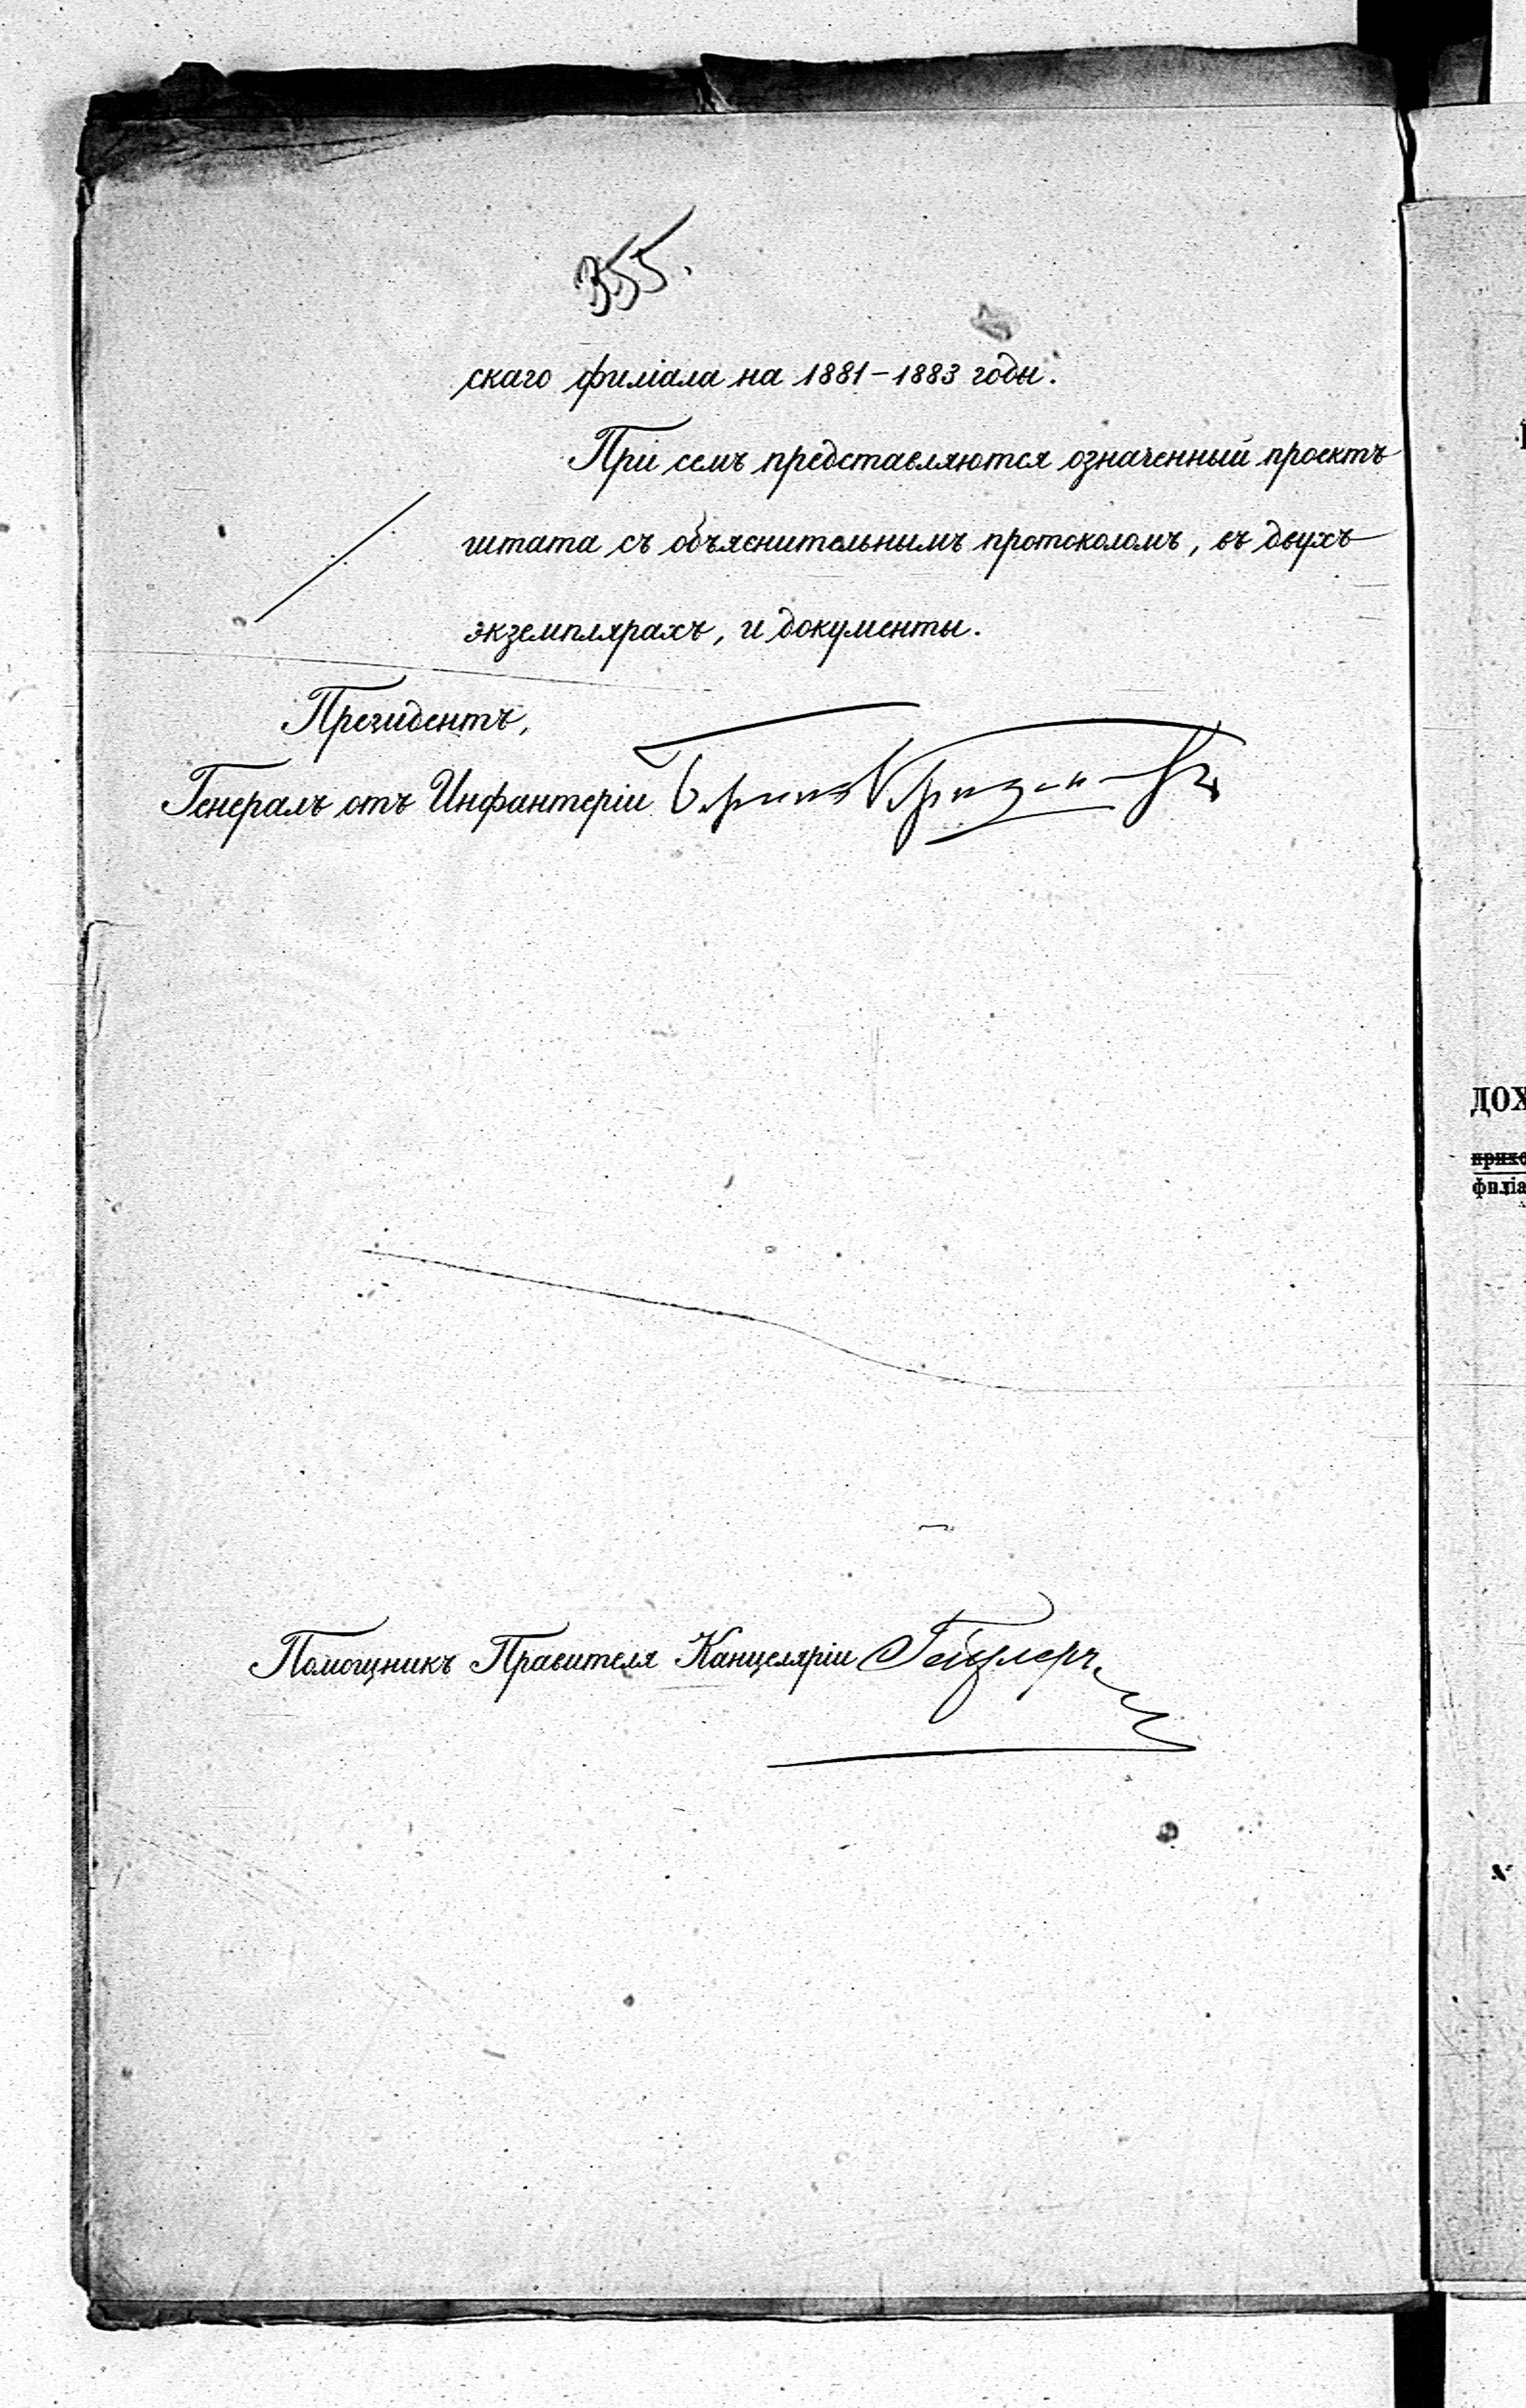 355.
скаго филіала на 1881–1883 годы.
При семъ представляются означенный проектъ
штата съ объяснительнымъ протоколомъ, въ двухъ
экземплярахъ, и документы.
Президентъ,
Генералъ отъ Инфантеріи
Помощникъ Правителя Канцеляріи Гейлеръ
ДОХ
прихо
филіа